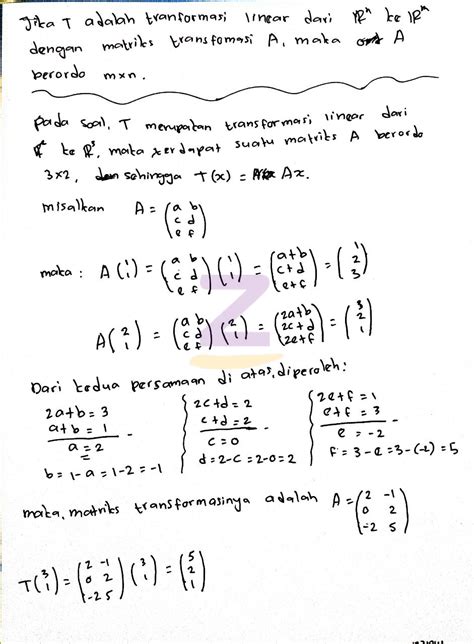 Jika T adalah tranformasi linear dari ℝⁿ ke ℝᵐ
dengan matriks transfomasi A, maka A
berordo m×n.
Pada soal, T merupakan transformasi linear dari
ℝ² ke ℝ³, maka terdapat suatu matriks A berordo
3×2, sehingga T(x) = Ax.
misalkan A = (a b; c d; e f)
maka: A(1; 1) = (a b; c d; e f)(1; 1) = (a+b; c+d; e+f) = (1; 2; 3)
A(2; 1) = (a b; c d; e f)(2; 1) = (2a+b; 2c+d; 2e+f) = (3; 2; 1)
Dari kedua persamaan di atas, diperoleh:
2a+b = 3
a+b = 1 -
a = 2
b = 1-a = 1-2 = -1
2c+d = 2
c+d = 2 -
c = 0
d = 2-c = 2-0 = 2
2e+f = 1
e+f = 3 -
e = -2
f = 3-e = 3-(-2) = 5
maka, matriks transformasinya adalah A = (2 -1; 0 2; -2 5)
T(3; 1) = (2 -1; 0 2; -2 5)(3; 1) = (5; 2; 1)